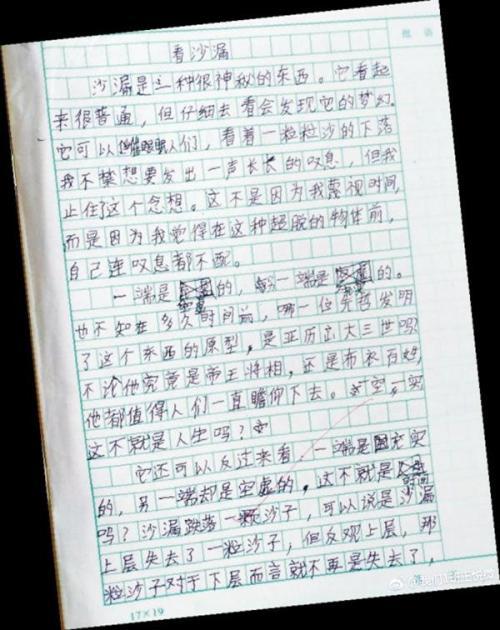 批语
看沙漏
沙漏是一种很神秘的东西。它看起
来很普通，但仔细去看会发现它的梦幻。
它可以催眠人们，看着一粒粒沙的下落
我不禁想要发出一声长长的叹息，但我
止住了这个念想。这不是因为我蔑视时间，
而是因为我觉得在这种超脱的物体前，
自己连叹息都不配。
一端是的，另一端是的。
也不知在多久时间前，哪一位先哲发明
了这个东西的原型，是亚历山大三世吗？
不论他究竟是帝王将相，还是布衣百姓，
他都值得人们一直瞻仰下去。一空，一实
这不就是人生吗？
它还可以反过来看，一端是充实
的，另一端却是空虚的，这不就是
吗？沙漏跌落一颗沙子，可以说是沙漏
上层失去了一粒沙子，但反观上层，那
粒沙子对于下层而言就不再是失去了，
17×19